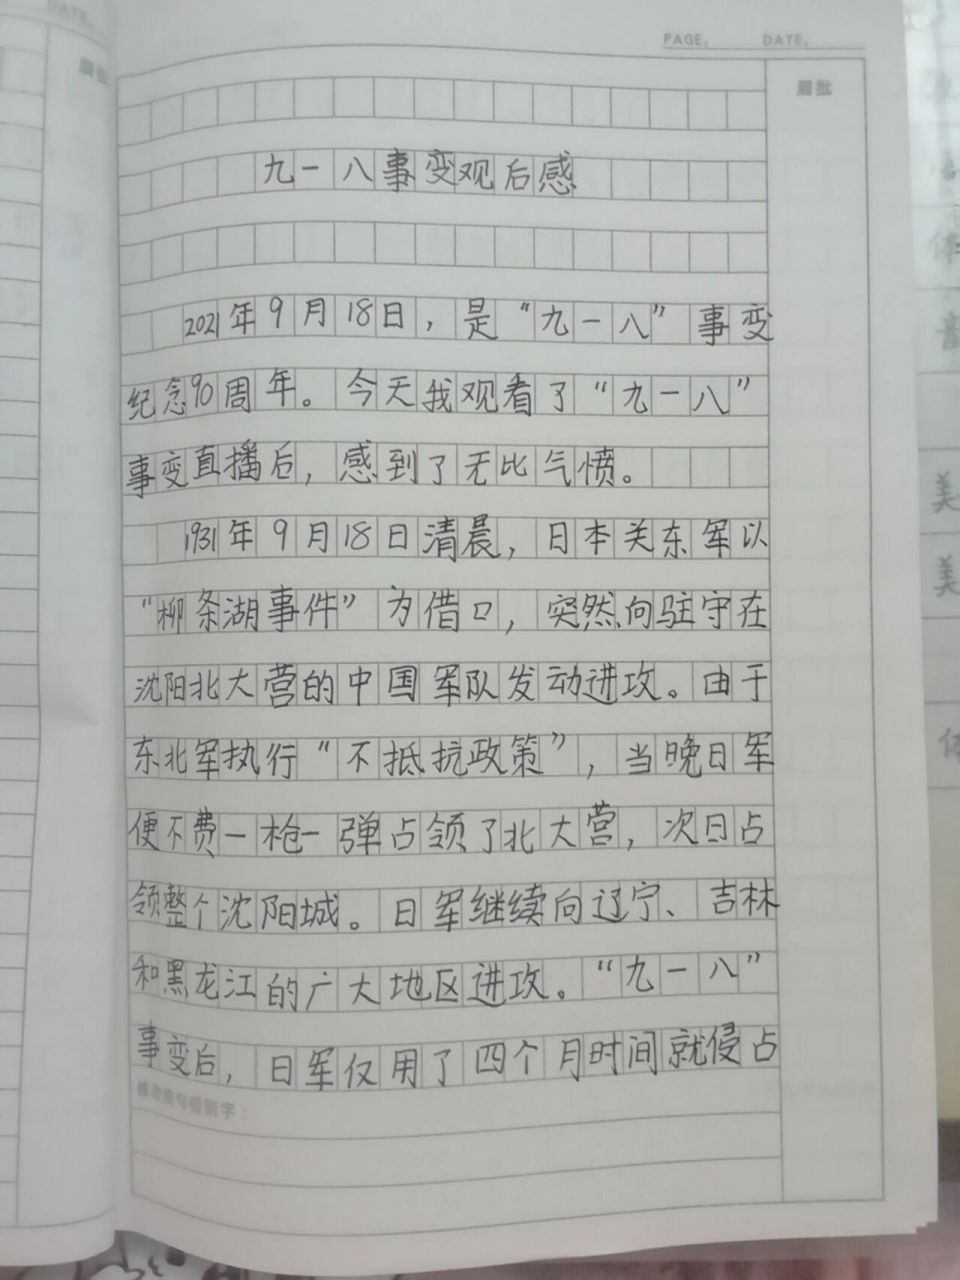 PAGE: DATE:
眉批
九一八事变观后感
2021年9月18日，是“九一八”事变
纪念90周年。今天我观看了“九一八”
事变直播后，感到了无比气愤。
1931年9月18日清晨，日本关东军以
“柳条湖事件”为借口，突然向驻守在
沈阳北大营的中国军队发动进攻。由于
东北军执行“不抵抗政策”，当晚日军
便不费一枪一弹占领了北大营，次日占
领整个沈阳城。日军继续向辽宁、吉林
和黑龙江的广大地区进攻。“九一八”
事变后，日军仅用了四个月时间就侵占
修改病句错别字：